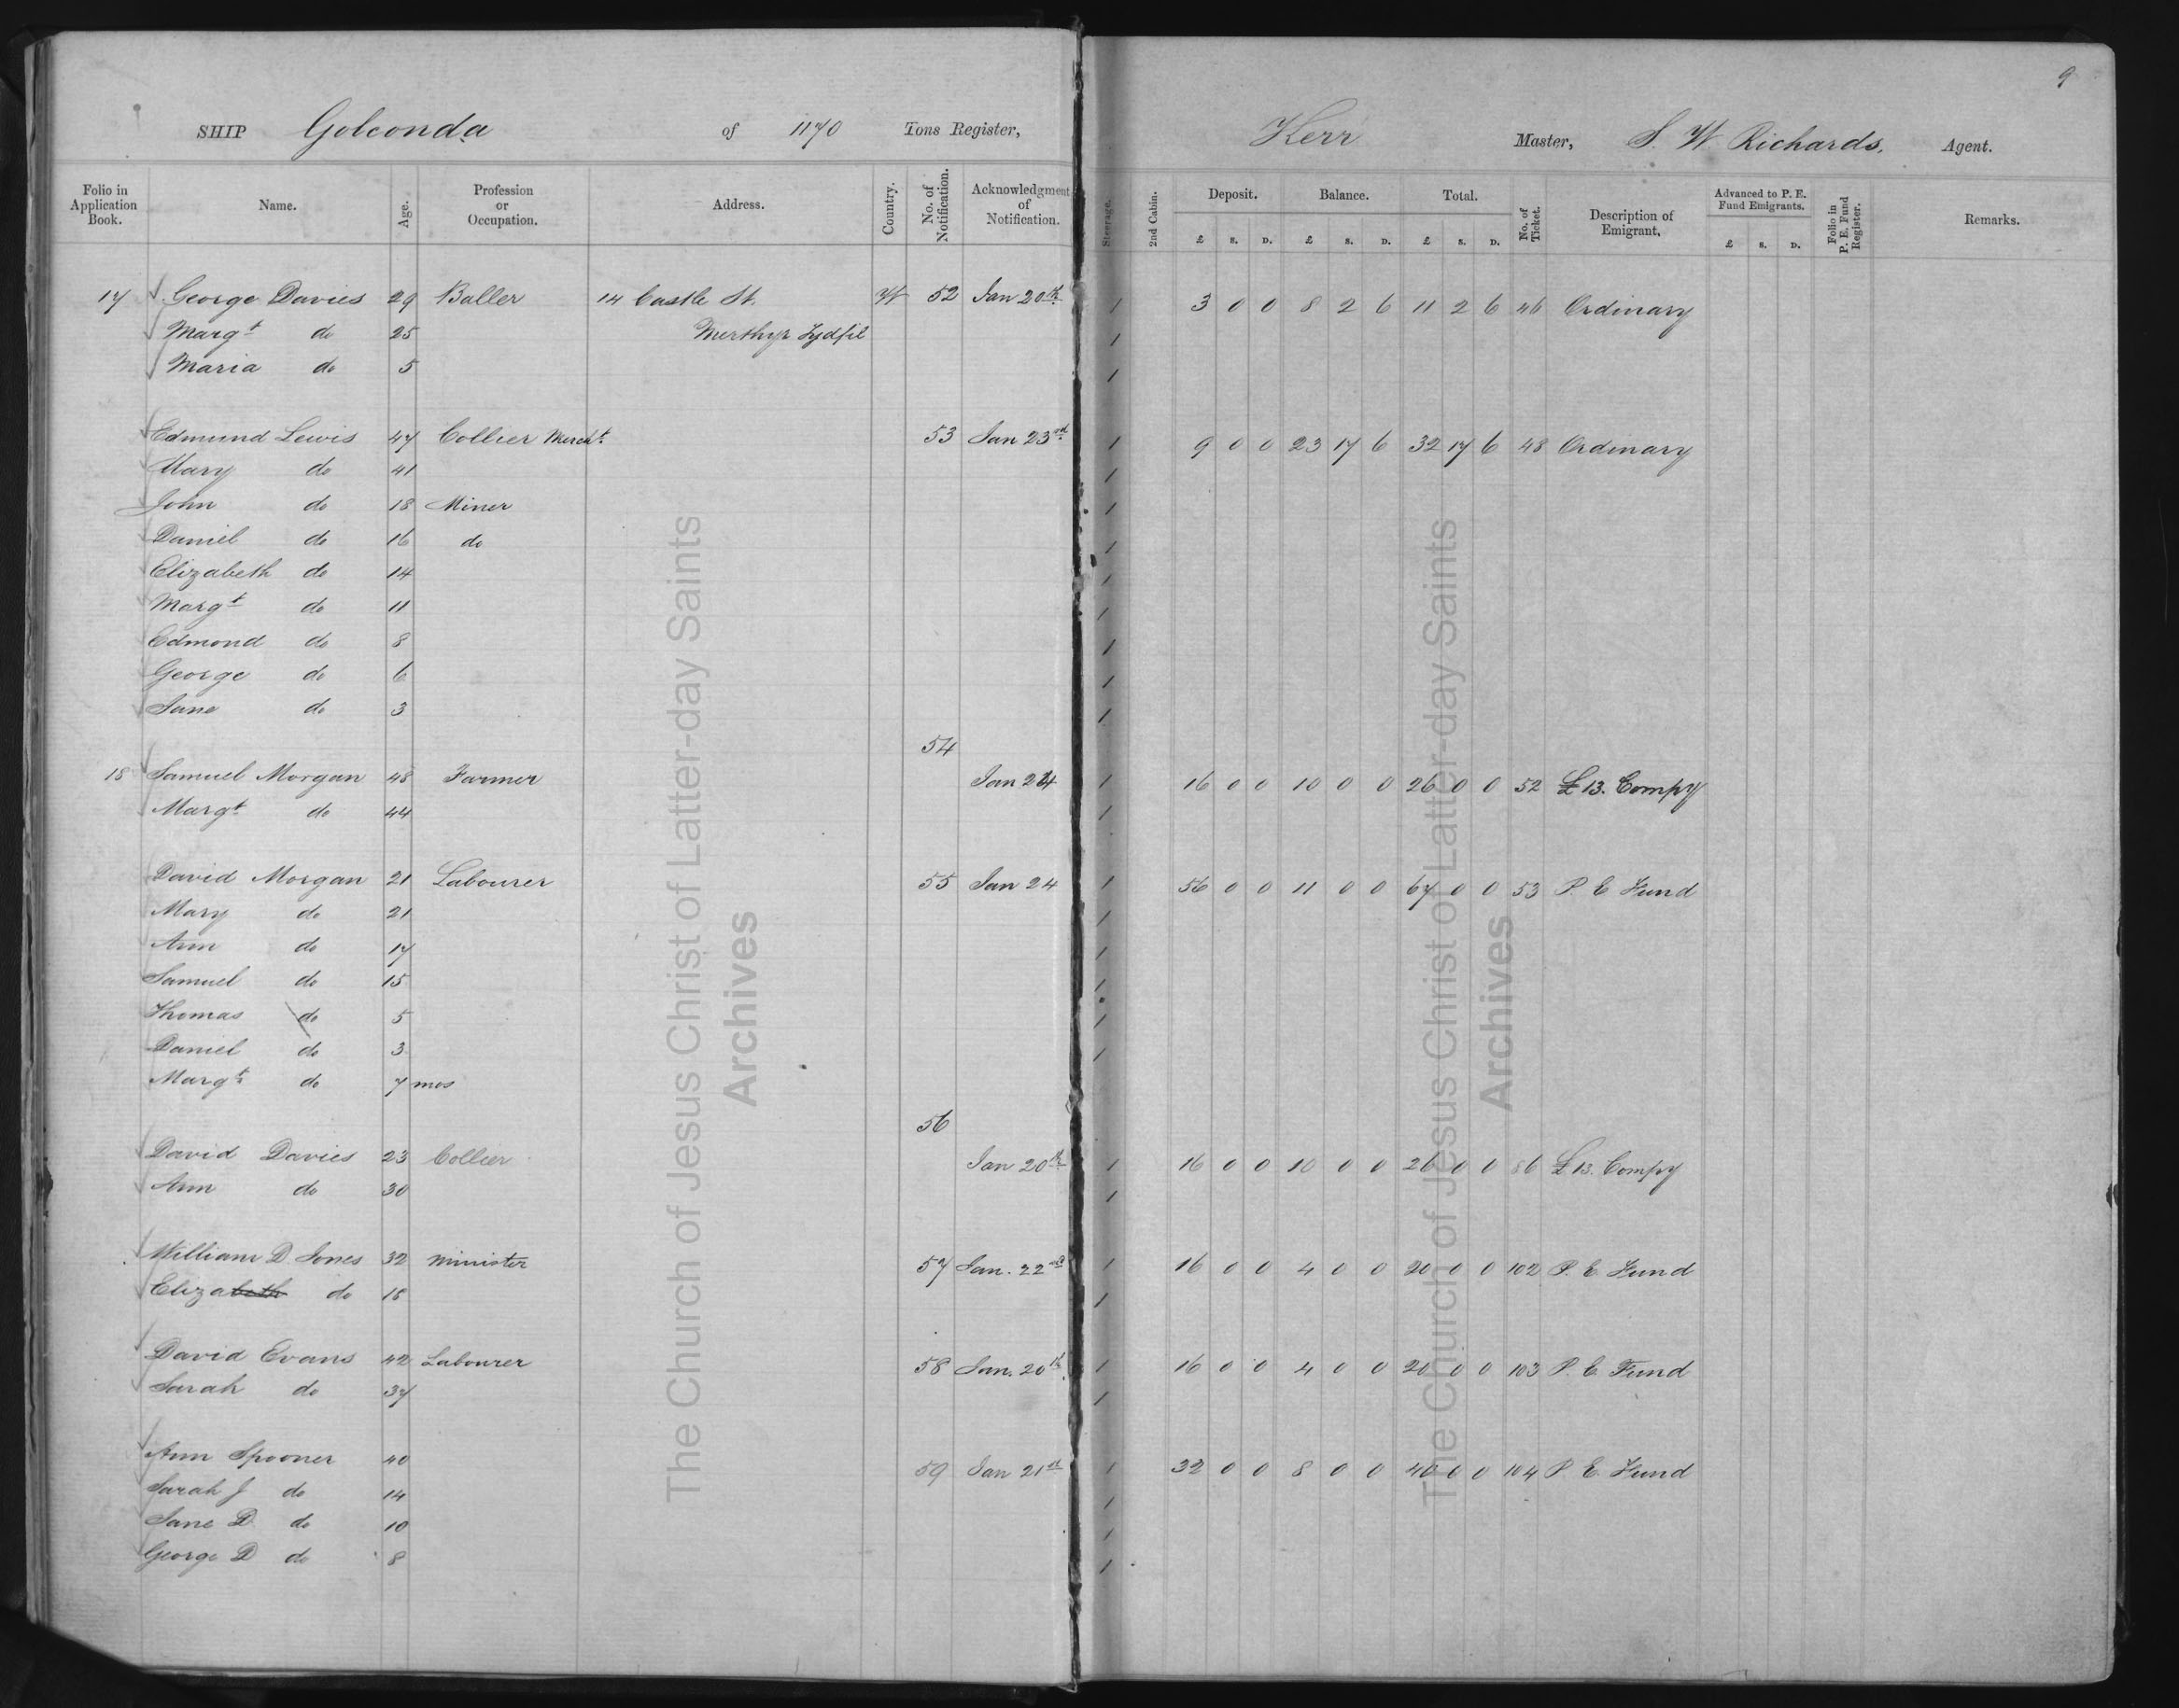 9
SHIP Golconda of 1170 Tons Register, Kerr Master, S. W. Richards, Agent.
Folio in Application Book. Name. Age. Profession or Occupation. Address. Country. No. of Notification. Acknowledgment of Notification. Steerage. 2nd Cabin. Deposit. Balance. Total. No. of Ticket. Description of Emigrant. Advanced to P. E. Fund Emigrants. Folio in P. E. Fund Register. Remarks.
£ S. D. £ S. D. £ S. D. £ S. D.
17 George Davies 29 Baller 14 Castle St. W 52 Jan 20th 1 3 0 0 8 2 6 11 2 6 46 Ordinary
Margt do 25 Merthyr Tydfil 1
Maria do 5 1
Edmund Lewis 47 Collier Mercht 53 Jan 23rd 1 9 0 0 23 17 6 32 17 6 48 Ordinary
Mary do 41 1
John do 18 Miner 1
Daniel do 16 do 1
Elizabeth do 14 1
Margt do 11 1
Edmond do 8 1
George do 6 1
Jane do 3 1
54
18 Samuel Morgan 48 Farmer Jan 24 1 16 0 0 10 0 0 26 0 0 52 £13. Compy
Margt do 44 1
David Morgan 21 Labourer 55 Jan 24 1 56 0 0 11 0 0 67 0 0 53 P. E. Fund
Mary do 21 1
Ann do 17 1
Samuel do 15 1
Thomas do 5 1
Daniel do 3 1
Margt do 7 mos
56
David Davies 23 Collier Jan 20th 1 16 0 0 10 0 0 26 0 0 86 £13. Compy
Ann do 30 1
William D Jones 32 Minister 57 Jan. 22nd 1 16 0 0 4 0 0 20 0 0 102 P. E. Fund
Elizabeth do 18 1
David Evans 42 Labourer 58 Jan. 20th 1 16 0 0 4 0 0 20 0 0 103 P. E. Fund
Sarah do 37 1
Ann Spooner 40 59 Jan 21st 1 32 0 0 8 0 0 40 0 0 104 P. E. Fund
Sarah J do 14 1
Jane D do 10 1
George D do 8 1
The Church of Jesus Christ of Latter-day Saints
Archives
The Church of Jesus Christ of Latter-day Saints
Archives